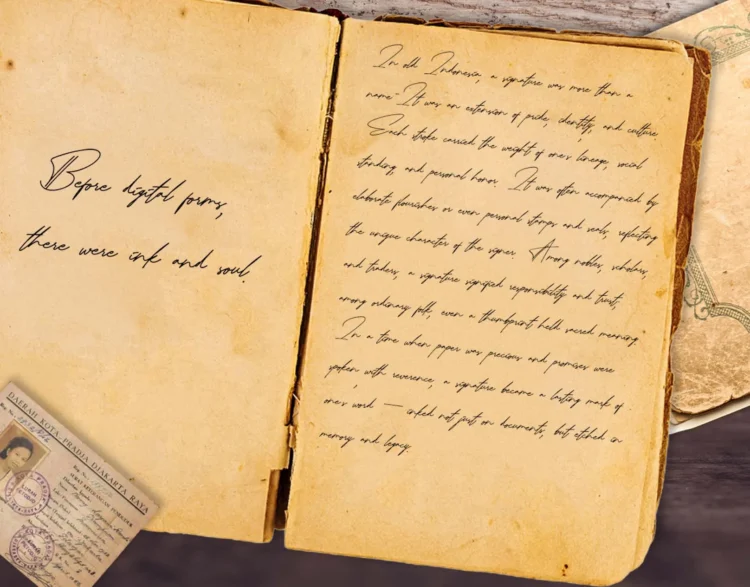 Before digital forms,
there were ink and soul.
In old Indonesia, a signature was more than a
name-It was an extension of pride, identity, and culture.
Each stroke carried the weight of one's lineage, social
standing, and personal honor. It was often accompanied by
elaborate flourishes or even personal stamps and seals, reflecting
the unique character of the signer. Among nobles, scholars,
and traders, a signature signified responsibility and trust,
among ordinary folk, even a thumbprint held sacred meaning.
In a time when paper was precious and promises were
spoken with reverence, a signature became a lasting mark of
one's word — inked not just on documents, but etched in
memory and legacy.
DAERAH KOTA PRADJA DJAKARTA RAYA